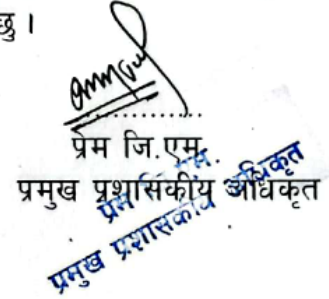 छु ।
प्रेम जि.एम.
प्रमुख प्रशासकीय अधिकृत
प्रेम जि.एम.
प्रमुख प्रशासकीय अधिकृत